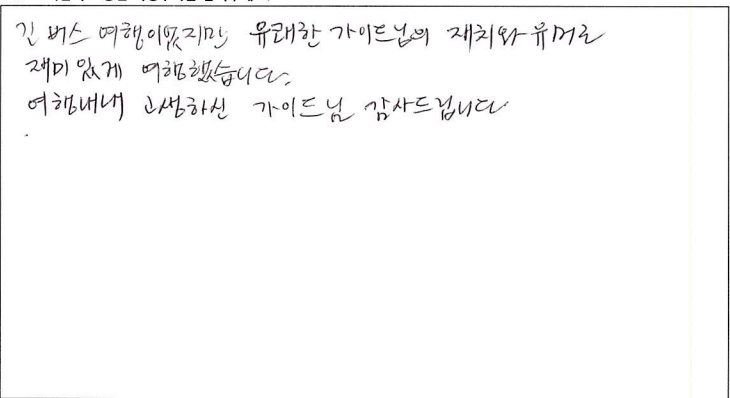 긴 버스 여행이었지만 유쾌한 가이드님의 재치와 유머로
재미있게 여행했습니다.
여행내내 고생하신 가이드님 감사드립니다